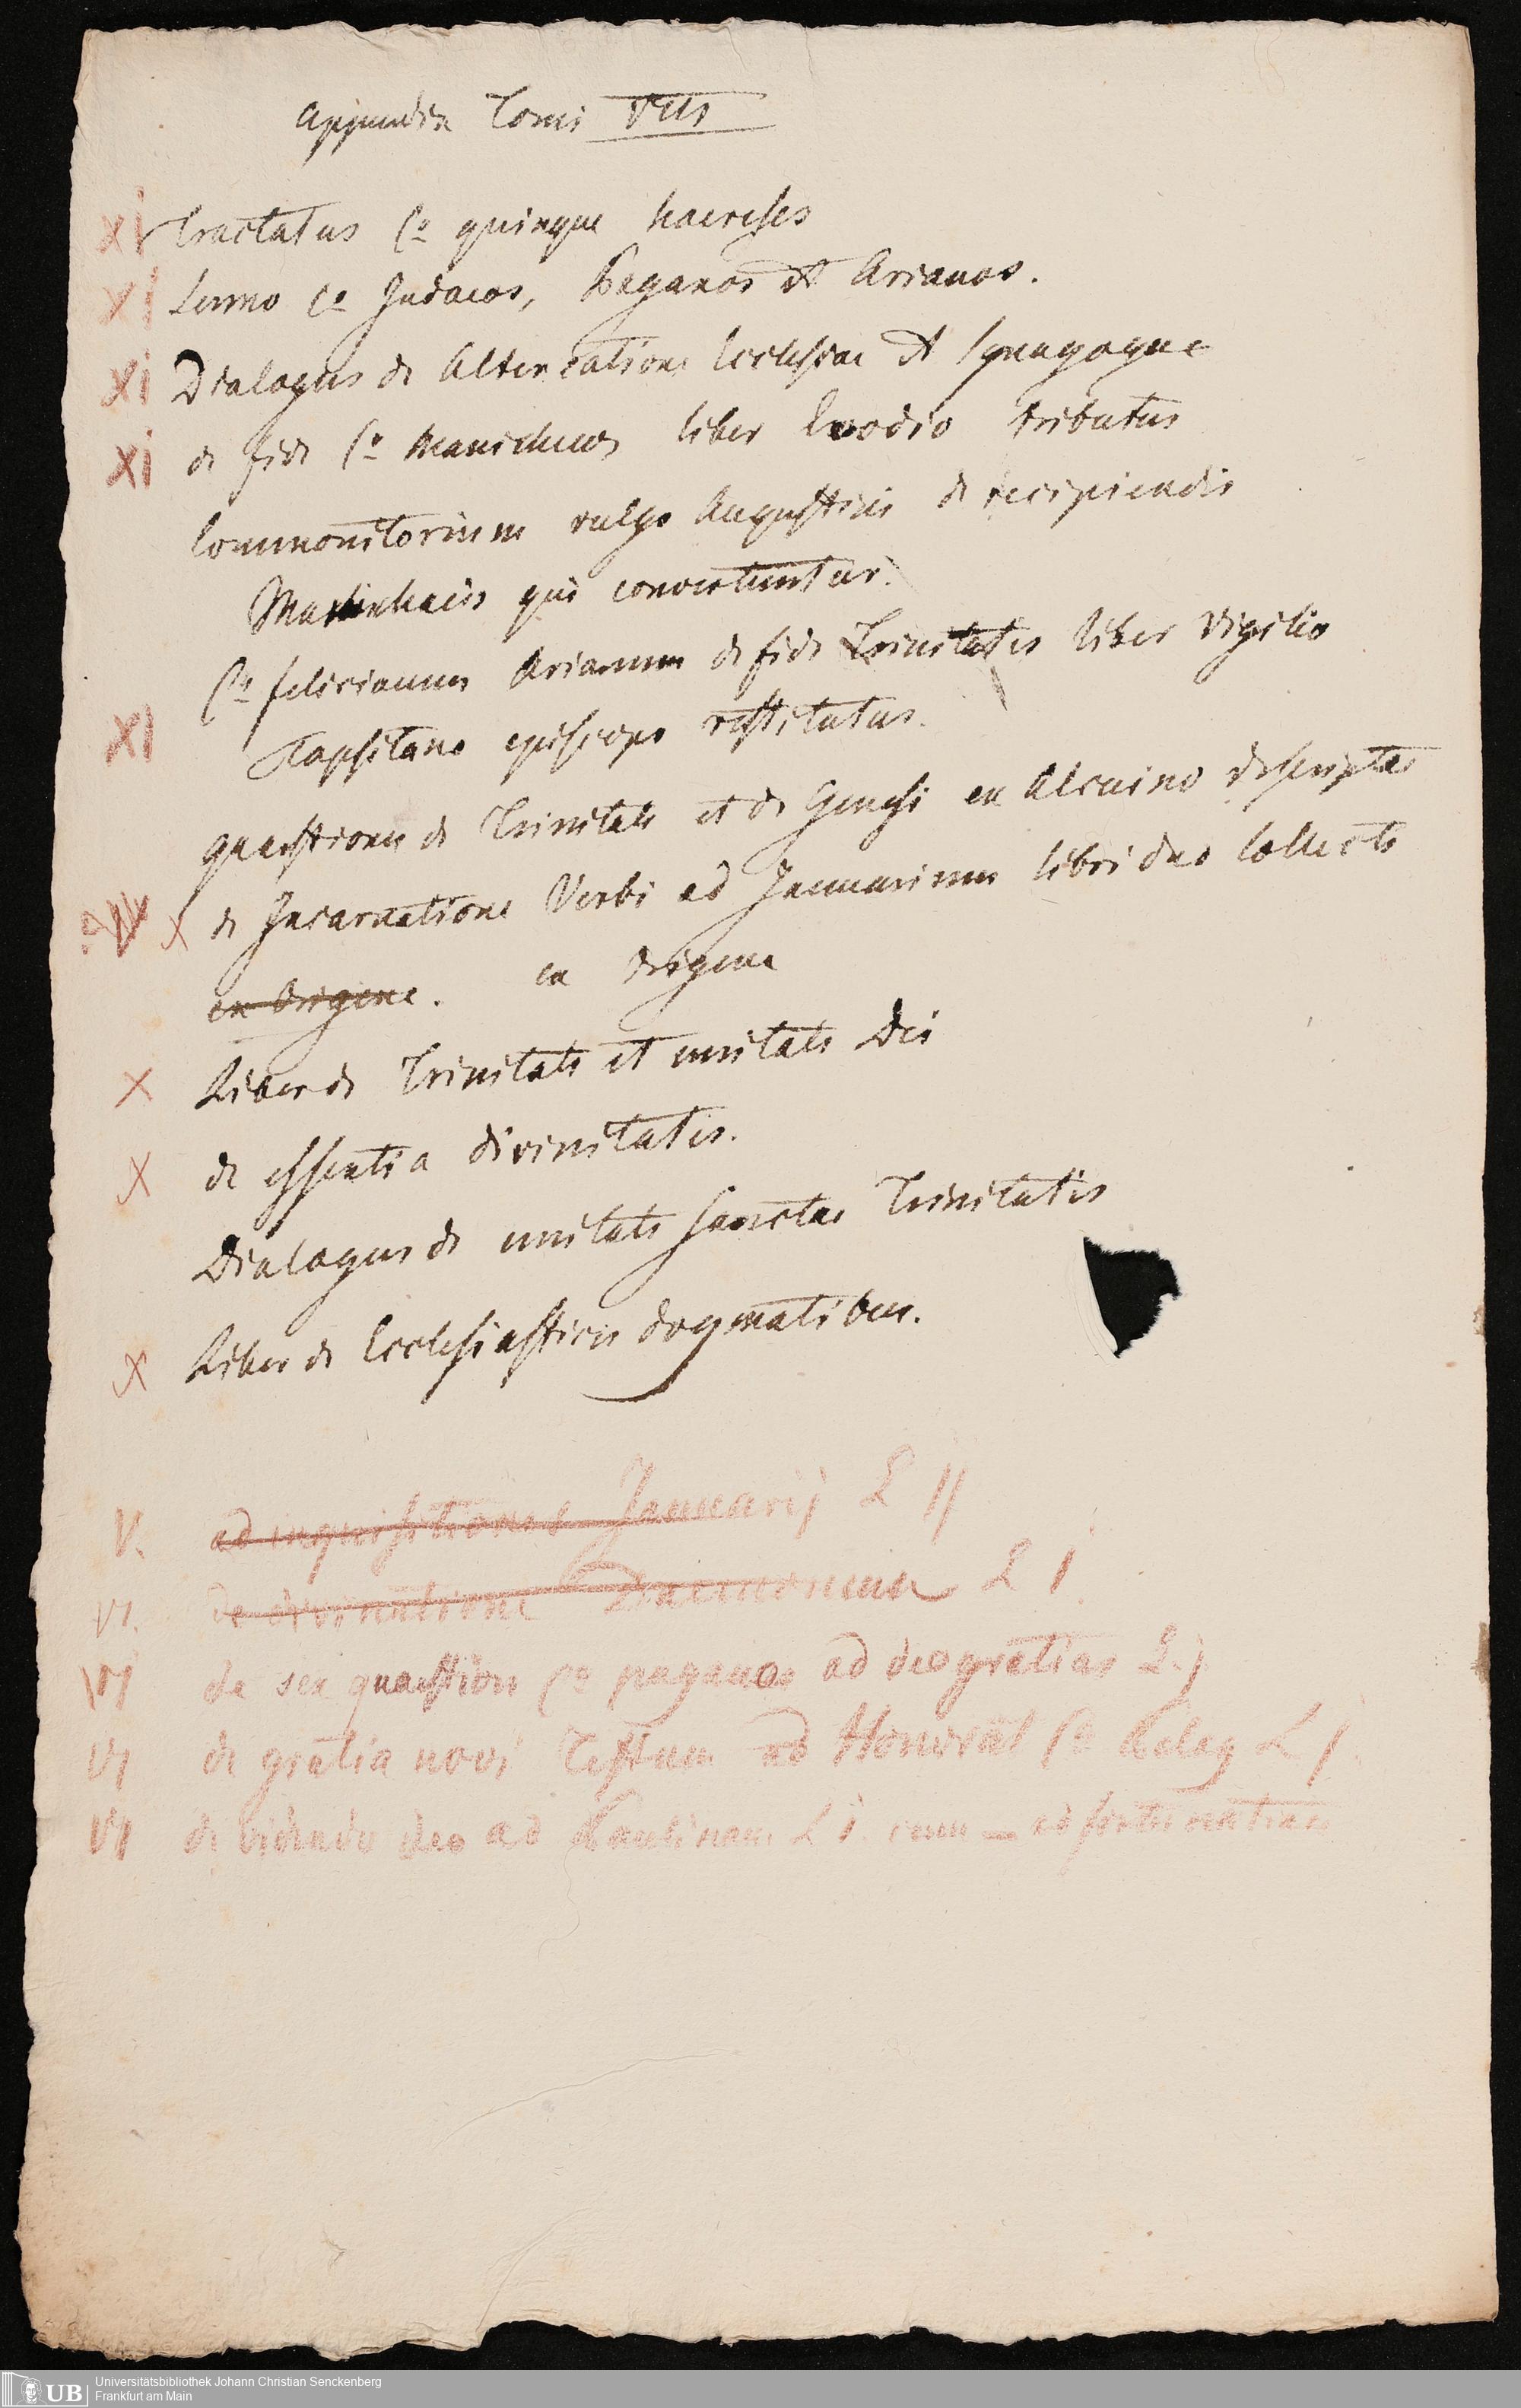 Appendix Tomi VIII
XI Tractatus Co quinque haereses
XI Sermo Co Judaeos, Paganos et Arianos.
XI Dialogus de Altercatione Ecclesiae et Synagogae
XI de fide Co Manichaeos liber Evodio tributus
Commonitorium vulgo Augustini de recipiendis
Manichaeis qui convertuntur.
Co felicianum Arianum de fide Trinitatis liber Vigilio
XI Tapsitano episcopo restitutus.
quaestiones de Trinitate et de Genesi ex Alcuino descriptae
X de Incarnatione Verbi ad Januarium libri duo collecti
ex Origene. ex Origene
X Liber de Trinitate et unitate Dei
X de essentia divinitatis.
Dialogus de unitate sanctae Trinitatis
X Liber de Ecclesiasticis dogmatibus.
V. ad inquisitiones Januarij L II
VI. de divinatione Daemonum L I
VI de sex quaestion Co paganos ad deogratias L. I
VI de gratia novi Testam ad Honorat Co Pelag L I.
VI de videndo deo ad Paulinam L I. cum ad fortunatian
UB Universitätsbibliothek Johann Christian Senckenberg
Frankfurt am Main